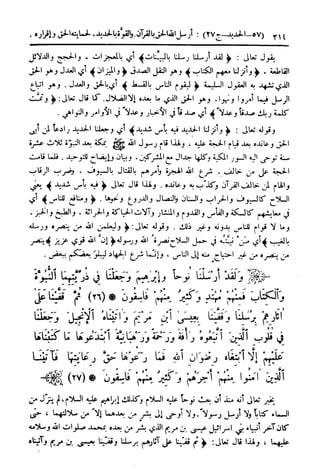 ٣١٤ (٥٧-الحديد-ج ٢٧) : أرسل الله الحق بالقرآن والقوة بالحديد، لحمايته الحق وإقراره.
يقول تعالى : ﴿ لقد أرسلنا رسلنا بالبينات﴾ أي بالمعجزات . والحجج والدلائل
القاطعة . ﴿ وأنزلنا معهم الكتاب﴾ وهو النقل الصدق ﴿ والميزان﴾ أي العدل وهو الحق
الذي تشهد به العقول السليمة ﴿ ليقوم الناس بالقسط﴾ أي بالحق والعدل . وهو اتباع
الرسل فيما أمروا ونهوا. وهو الحق الذي ما بعده إلا الضلال. كما قال تعالى: ﴿ وتمت
كلمة ربك صدقاً وعدلاً﴾ أي صدقاً في الأخبار وعدلاً في الأوامر والنواهي .
وقوله تعالى : ﴿ وأنزلنا الحديد فيه بأس شديد﴾ أي وجعلنا الحديد رادعاً لمن أبى
الحق وعانده بعد قيام الحجة عليه . ولهذا قام رسول الله ﷺ بمكة بعد النبوة ثلاث عشرة
سنة توحى إليه السور المكية وكلها جدال مع المشركين. وبيان وإيضاح للتوحيد . فلما قامت
الحجة على من خالف . شرع الله الهجرة وأمرهم بالقتال بالسيوف . وضرب الرقاب
والهام لمن خالف القرآن وكذب به وعانده . ولهذا قال تعالى ﴿ فيه بأس شديد﴾ يعني
السلاح كالسيوف والحراب والسنان والنصال والدروع ونحوها . ﴿ ومنافع للناس﴾ أي
في معايشهم كالسكة والفأس والقدوم والمنشار وآلات الحياكة والحراثة . والطبخ والخبز.
وما لا قوام للناس بدونه وغير ذلك . وقوله تعالى: ﴿ وليعلم الله من ينصره ورسله
بالغيب﴾ أي من نيته في حمل السلاح نصرة الله ورسوله ﴿ إن الله قوي عزيز﴾ ينصر
من ينصره من غير احتياج منه إلى الناس . وإنما شرع الجهاد ليبلو بعضكم ببعض .
وَلَقَدْ أَرْسَلْنَا نُوحاً وَإِبْرَهِيمَ وَجَعَلْنَا فِي ذُرِّيَّتِهِمَا ٱلنُّبُوَّةَ
وَٱلْكِتَابَ فَمِنْهُمْ مُهْتَدٍ وَكَثِيرٌ مِنْهُمْ فَاسِقُونَ (٢٦) ثُمَّ قَفَّيْنَا عَلَىٰ
آثَارِهِمْ بِرُسُلِنَا وَقَفَّيْنَا بِعِيسَى ٱبْنِ مَرْيَمَ وَآتَيْنَاهُ ٱلْإِنْجِيلَ وَجَعَلْنَا
فِي قُلُوبِ ٱلَّذِينَ ٱتَّبَعُوهُ رَأْفَةً وَرَحْمَةً وَرَهْبَانِيَّةً ٱبْتَدَعُوهَا مَا كَتَبْنَاهَا
عَلَيْهِمْ إِلَّا ٱبْتِغَاءَ رِضْوَانِ ٱللَّهِ فَمَا رَعَوْهَا حَقَّ رِعَايَتِهَا فَآتَيْنَا
ٱلَّذِينَ آمَنُوا مِنْهُمْ أَجْرَهُمْ وَكَثِيرٌ مِنْهُمْ فَاسِقُونَ (٢٧)
يخبر تعالى أنه منذ أن بعث نوحاً عليه السلام وكذلك إبراهيم عليه السلام، لم ينزل من
السماء كتاباً ولا أرسل رسولاً. ولا أوحى إلى بشر من بعدهما إلا من سلالتهما ، حتى
كان آخر أنبياء بني اسرائيل عيسى بن مريم الذي بشر من بعده بمحمد صلوات الله وسلامه
عليهما ، ولهذا قال تعالى: ﴿ ثم قفينا على آثارهم برسلنا وقفينا بعيسى بن مريم وآتيناه